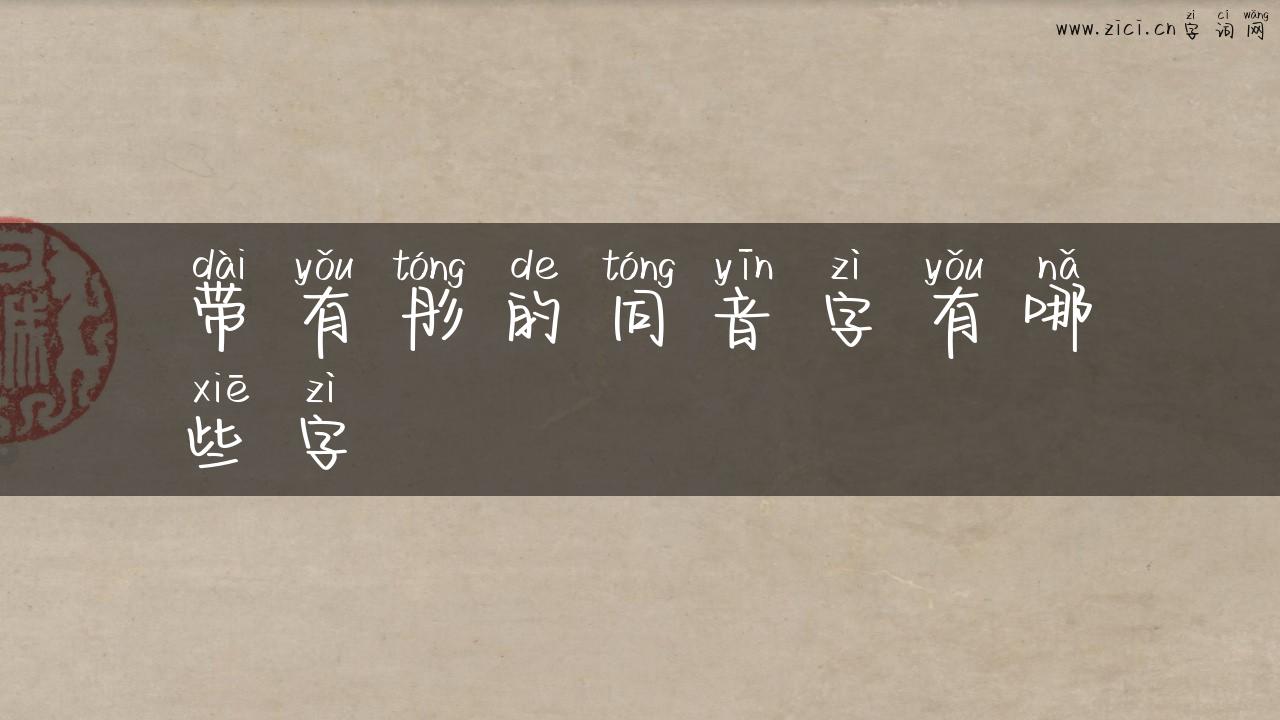 zì cí wǎng
www.zici.cn 字词网
dài yǒu tóng de tóng yīn zì yǒu nǎ
带有彤的同音字有哪
xiē zì
些字